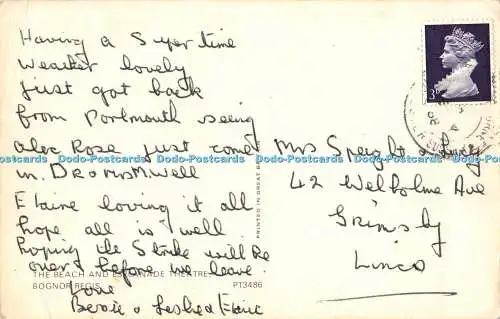 Having a Super time
weather lovely
just got back
from Portmouth seeing
alec Rose just come
in. DRomsMwell
Elaine loving it all
hope all is well
hoping the Strike will be
over before we leave
Love
Bessie & Leshed Elaine
Mrs Speight & Family
42 Welholme Ave
Grimsby
Lincs
THE BEACH AND ESPLANADE THEATRE,
BOGNOR REGIS
PT3486
PRINTED IN GREAT
3D
Dodo-Postcards Dodo-Postcards Dodo-Postcards Dodo-Postcards Dodo-Postcards Dodo-Postcards